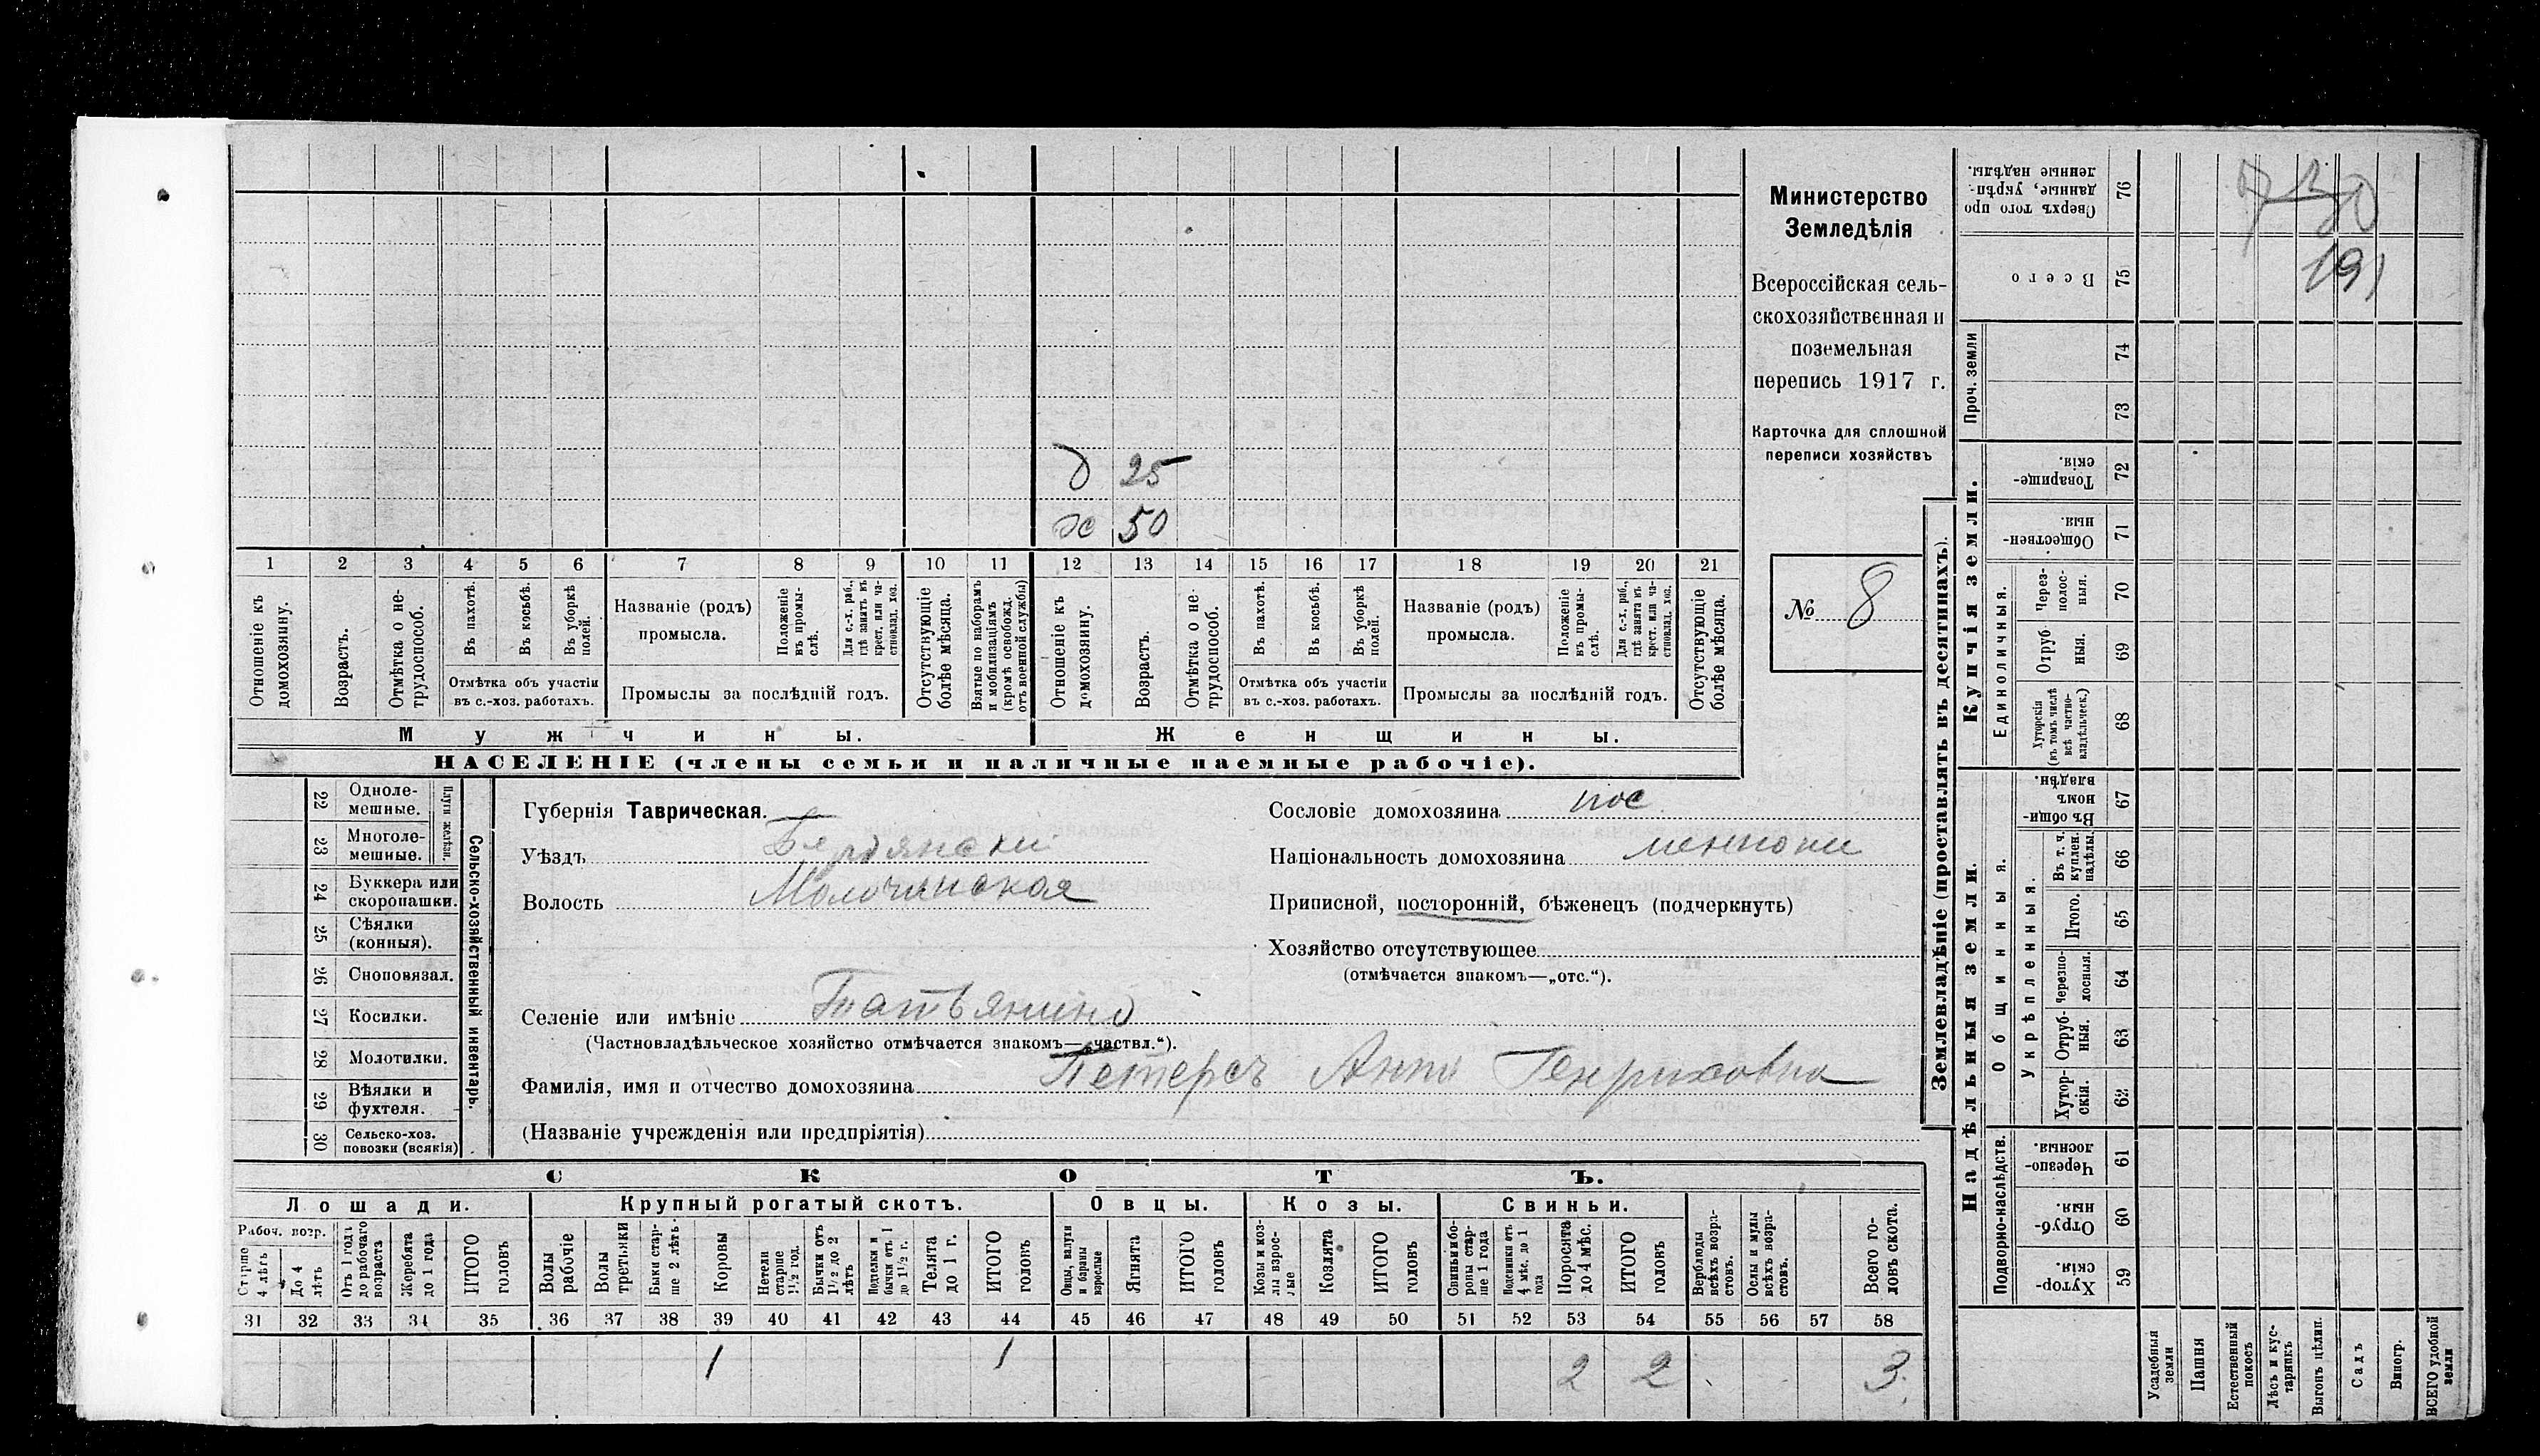 Министерство
Земледѣлія
Всероссійская сель-
скохозяйственная и
поземельная
перепись 1917 г.
Карточка для сплошной
переписи хозяйствъ
№ 8
д 25
ж 50
1 2 3 4 5 6 7 8 9 10 11 12 13 14 15 16 17 18 19 20 21
Отношеніе къ домохозяину.
Возрастъ.
Отмѣтка о не-трудоспособ.
Въ пахотѣ.
Въ косьбѣ.
Въ уборкѣ полей.
Отмѣтка объ участіи
въ с.-хоз. работахъ.
Названіе (родъ)
промысла.
Положеніе въ промы-слѣ.
Для с.-х. раб., гдѣ занятъ въ крест. или ча-стновлад. хоз.
Промыслы за послѣдній годъ.
Отсутствующіе болѣе мѣсяца.
Взятые по наборамъ и мобилизаціямъ (кромѣ освобожд. отъ военной службы)
Отношеніе къ домохозяину.
Возрастъ.
Отмѣтка о не-трудоспособ.
Въ пахотѣ.
Въ косьбѣ.
Въ уборкѣ полей.
Отмѣтка объ участіи
въ с.-хоз. работахъ.
Названіе (родъ)
промысла.
Положеніе въ промы-слѣ.
Для с.-х. раб., гдѣ занята въ крест. или ча-стновлад. хоз.
Промыслы за послѣдній годъ.
Отсутствующіе болѣе мѣсяца.
Мужчины. Женщины.
НАСЕЛЕНІЕ (члены семьи и наличные наемные рабочіе).
22 Одноле-мешные.
23 Многоле-мешные.
Плуги желѣзн.
24 Буккера или скоропашки.
25 Сѣялки (конныя).
26 Сноповязал.
27 Косилки.
28 Молотилки.
29 Вѣялки и фухтеля.
30 Сельско-хоз. повозки (всякія)
Сельско-хозяйственный инвентарь.
Губернія Таврическая.
Уѣздъ Бердянский
Волость Молочанская
Сословіе домохозяина пос
Національность домохозяина
Приписной, посторонній, бѣженецъ (подчеркнуть)
Хозяйство отсутствующее
(отмѣчается знакомъ—„отс.“).
Селеніе или имѣніе Татьянино
(Частновладѣльческое хозяйство отмѣчается знакомъ—„частвл.“).
Фамилія, имя и отчество домохозяина Петерсъ Анна Генриховна
(Названіе учрежденія или предпріятія)
СКОТЪ.
Лошади. Крупный рогатый скотъ. Овцы. Козы. Свиньи.
Рабоч. возр.
Старше 4 лѣтъ
До 4 лѣтъ
Отъ 1 года до рабочаго возраста
Жеребята до 1 года
ИТОГО головъ
Волы рабочіе
Волы третьяки
Быки стар-ше 2 лѣтъ.
Коровы
Нетели старше 1½ год.
Бычки отъ 1½ до 2 лѣтъ
Подтелки и бычки отъ 1 до 1½ г.
Телята до 1 г.
ИТОГО головъ
Овцы, валухи и бараны взрослые
Ягнята
ИТОГО головъ
Козы и коз-лы взрос-лые
Козлята
ИТОГО головъ
Свиньи и бо-ровы стар-ше 1 года
Подсвинки отъ 4 мѣс. до 1 года
Поросята до 4 мѣс.
ИТОГО головъ
Верблюды всѣхъ возра-стовъ.
Ослы и мулы всѣхъ возра-стовъ.
Всего го-ловъ скота.
31 32 33 34 35 36 37 38 39 40 41 42 43 44 45 46 47 48 49 50 51 52 53 54 55 56 57 58
1 1 2 2 3
Землевладѣніе (проставлять въ десятинахъ).
191
Сверхъ того про данные, укрѣп-ленные надѣлы. 76
Всего 75
Проч. земли 74
73
Купчія земли.
Товарище-скія. 72
Обществен-ныя. 71
Единоличныя.
Через-полос-ныя. 70
Отруб ныя. 69
Хуторскія (въ томъ числѣ всѣ частно-владѣльческ.) 68
Надѣльныя земли.
Общинныя.
Въ общи-номъ владѣн. 67
Укрѣпленныя.
Въ т. ч. куплен. надѣлы. 66
Итого. 65
Черезпо-лосныя. 64
Отруб-ныя. 63
Хутор-скія. 62
Подворно-наслѣдств.
Черезпо-лосныя. 61
Отруб-ныя. 60
Хутор-скія. 59
Усадебныя земли
Пашня
Естественный покосъ
Лѣсъ и кус-тарникъ
Выгонъ цѣлин.
Садъ
Виногр.
ВСЕГО удобной земли